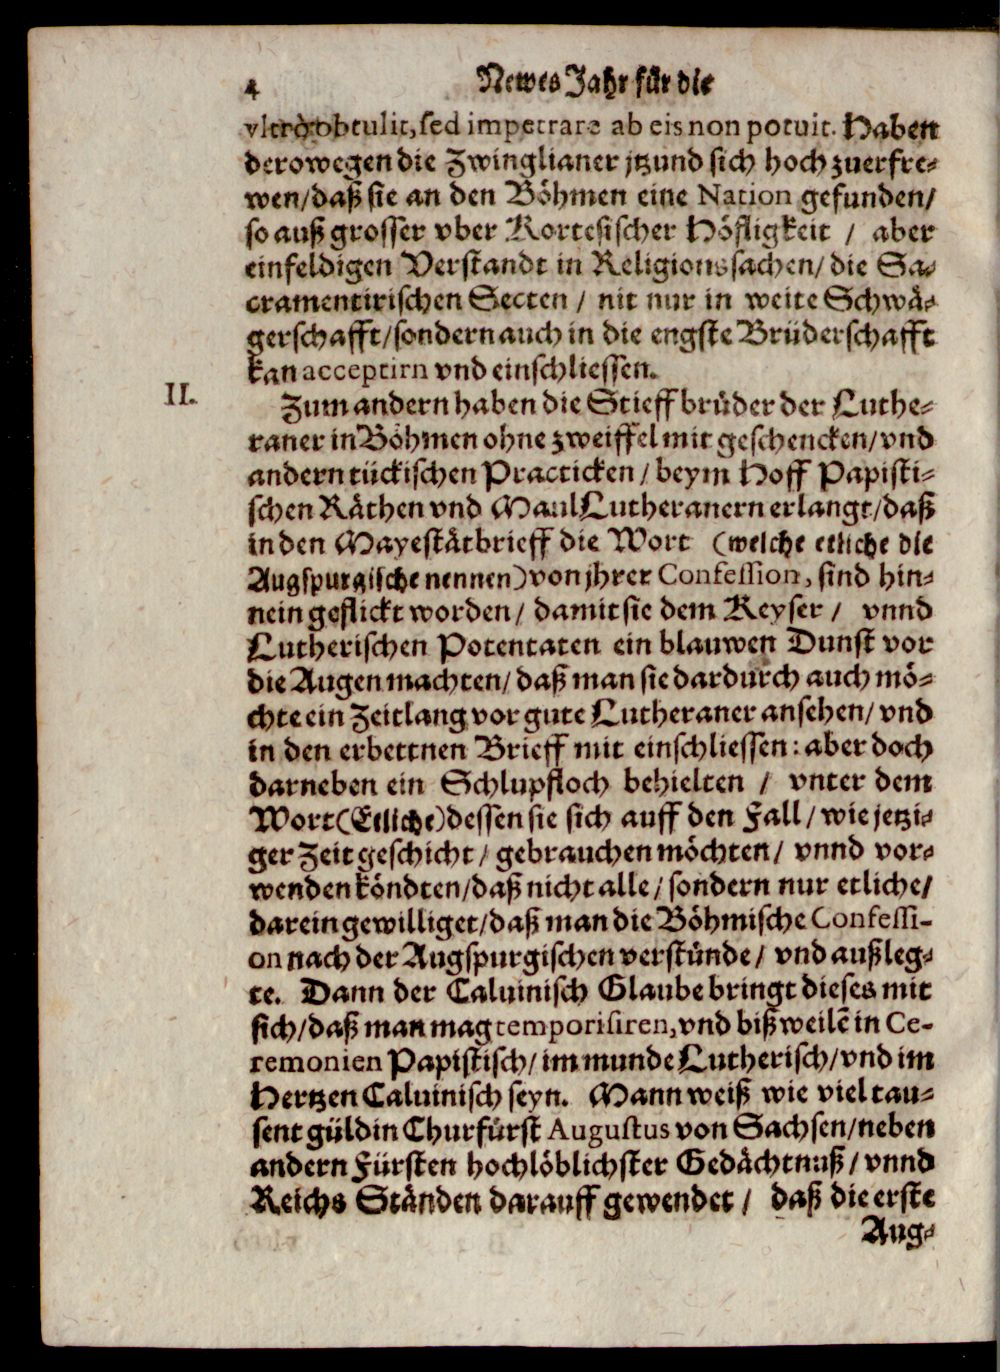 4 Newes Jahr für die
vltrò obtulit, sed impetrare ab eis non potuit. Haben
derowegen die Zwinglianer jtzund sich hoch zuerfre-
wen/daß sie an den Böhmen eine Nation gefunden/
so auß grosser vber Kortesischer Höfligkeit / aber
einfeldigen Verstandt in Religionssachen/ die Sa-
cramentirischen Secten / nit nur in weite Schwä-
gerschafft/sondern auch in die engste Brüderschafft
kan acceptirn vnd einschliessen.
II. Zum andern haben die Stieffbrüder der Luthe-
raner in Böhmen ohne zweiffel mit geschencken/vnd
andern tückischen Practicken / beym Hoff Papisti-
schen Räthen vnd MaulLutheranern erlangt/daß
in den Mayestätbrieff die Wort (welche etliche die
Augspurgische nennen) von jhrer Confession, sind hin-
nein geflickt worden / damit sie dem Keyser / vnnd
Lutherischen Potentaten ein blauwen Dunst vor
die Augen machten/ daß man sie dardurch auch mö-
chte ein Zeitlang vor gute Lutheraner ansehen/ vnd
in den erbettnen Brieff mit einschliessen: aber doch
darneben ein Schlupfloch behielten / vnter dem
Wort (Etliche) dessen sie sich auff den Fall / wie jetzi-
ger Zeit geschicht / gebrauchen möchten / vnnd vor-
wenden köndten/daß nicht alle / sondern nur etliche/
darein gewilliget/daß man die Böhmische Confessi-
on nach der Augspurgischen verstünde / vnd außleg-
te. Dann der Caluinisch Glaube bringt dieses mit
sich/daß man mag temporisiren, vnd bißweilẽ in Ce-
remonien Papistisch/ im munde Lutherisch/vnd im
Hertzen Caluinisch seyn. Mann weiß wie viel tau-
sent güldin Churfürst Augustus von Sachsen/neben
andern Fürsten hochlöblichster Gedächtnuß / vnnd
Reichs Ständen darauff gewendet / daß die erste
Aug-